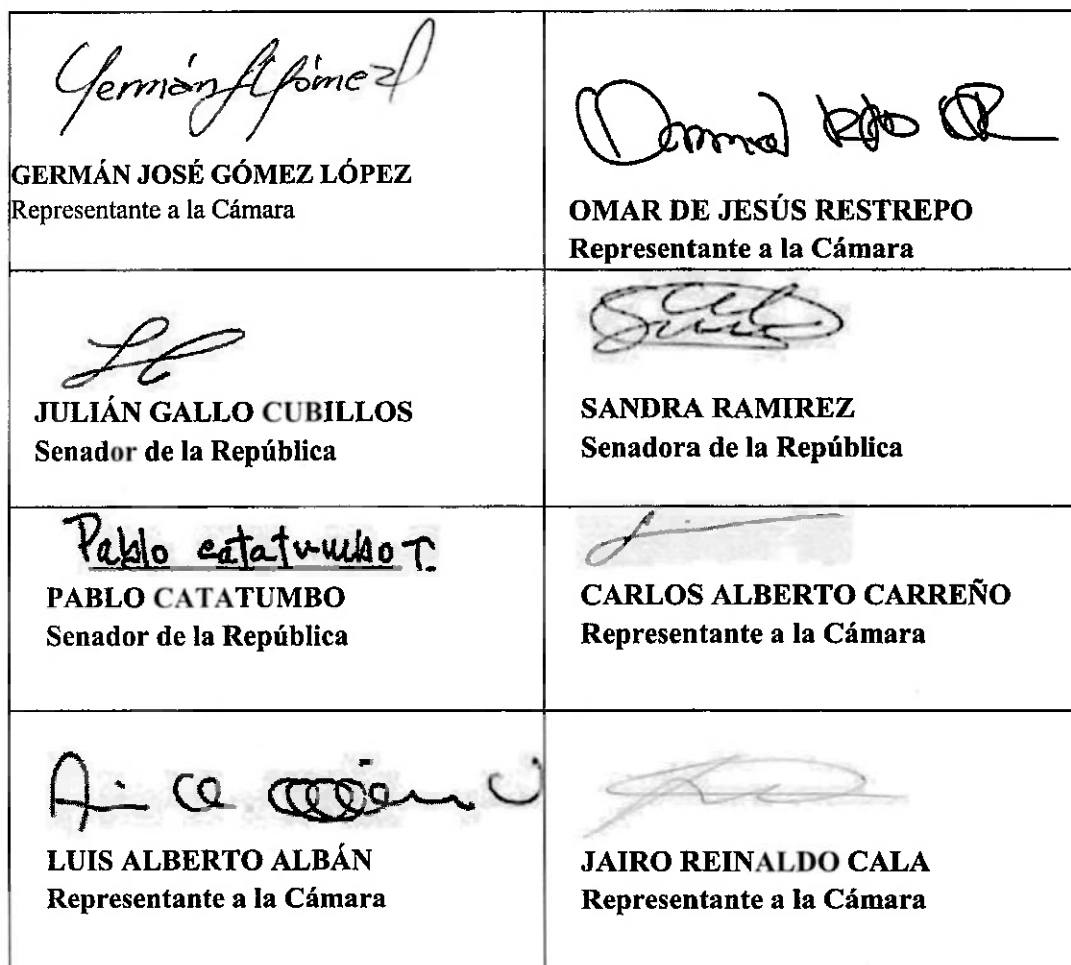 Germán J Gómez
GERMÁN JOSÉ GÓMEZ LÓPEZ
Representante a la Cámara
OMAR DE JESÚS RESTREPO
Representante a la Cámara
JULIÁN GALLO CUBILLOS
Senador de la República
SANDRA RAMIREZ
Senadora de la República
Pablo catatumbo T.
PABLO CATATUMBO
Senador de la República
CARLOS ALBERTO CARREÑO
Representante a la Cámara
LUIS ALBERTO ALBÁN
Representante a la Cámara
JAIRO REINALDO CALA
Representante a la Cámara